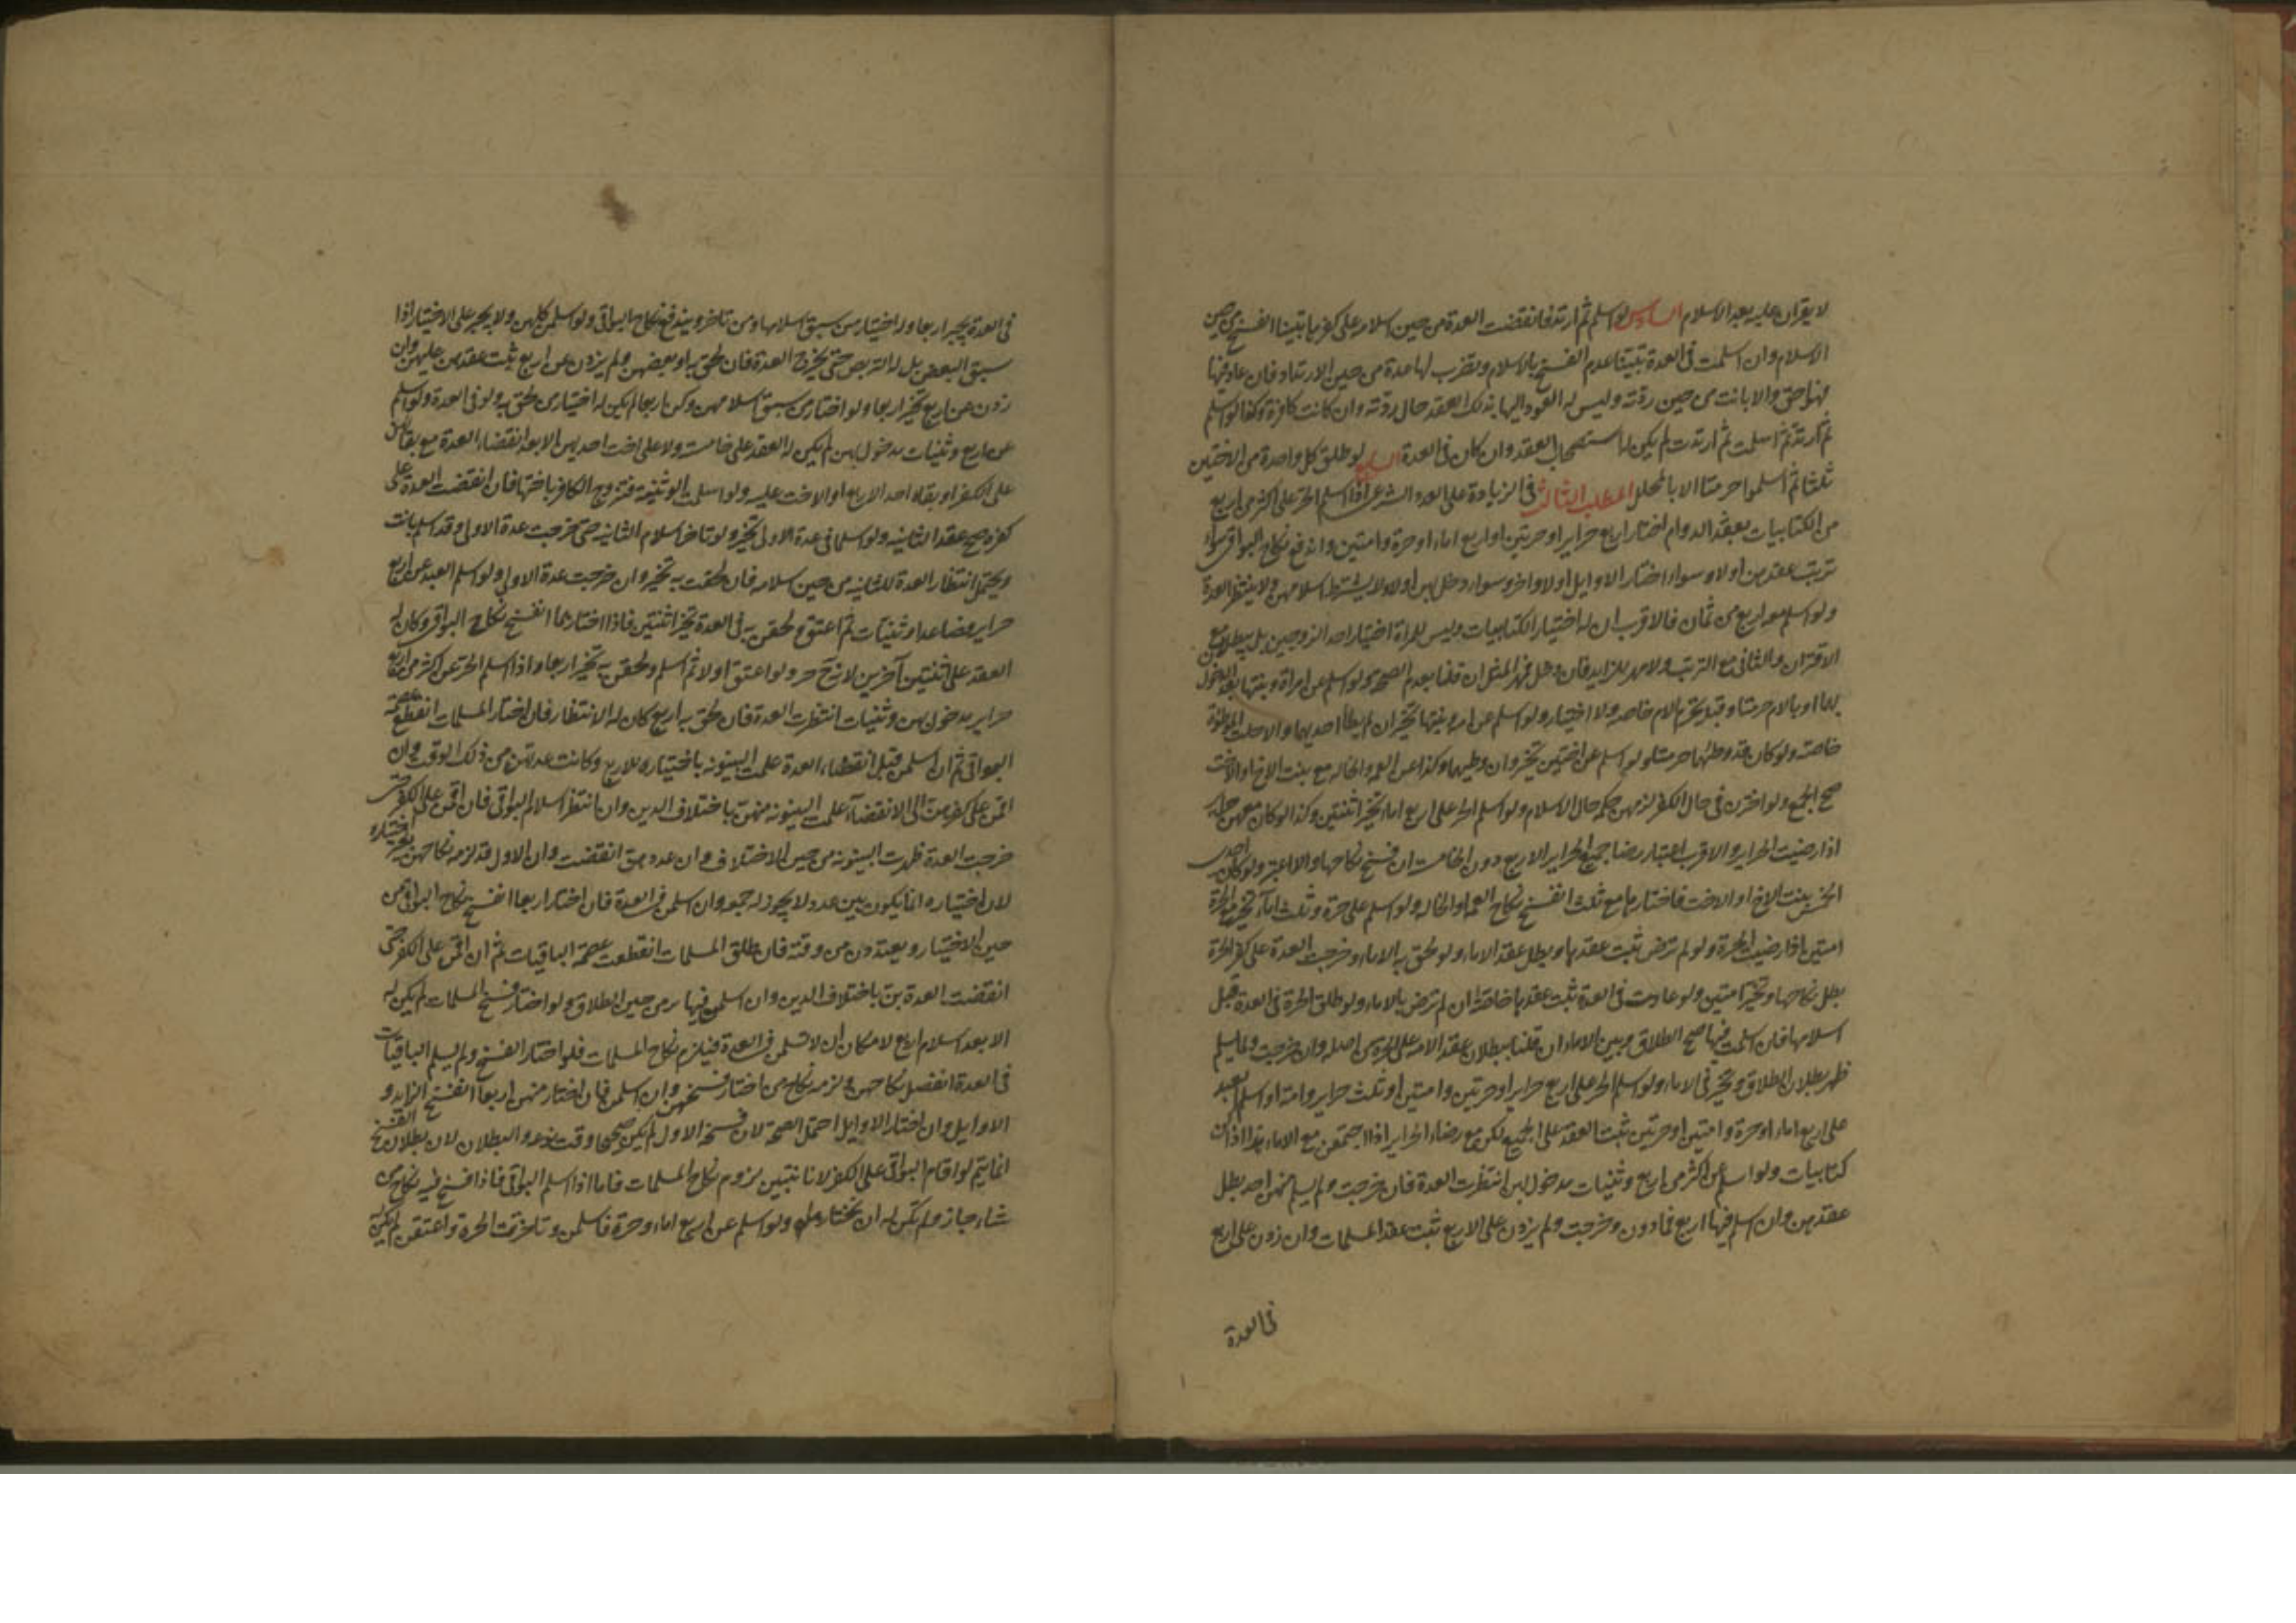 لا يقران عليه بعد الاسلام السادس لو اسلم ثم ارتد فانقضت العدة من حين اسلامه على كفرها تبينا الفسخ من حين
الاسلام وان اسلمت فى العدة تبينا عدم الفسخ بالاسلام وتضرب لها عدة من حين الارتداد فان عاد فيها
فهو احق والا بانت من حين ردته وليس له العود اليها بذلك العقد حال ردته وان كانت كافرة وكذا لو اسلم
ثم ارتد ثم اسلمت ثم ارتدت لم يكن له استصحاب العقد وان كان فى العدة السابع لو طلق كل واحدة من الاختين
ثلثا ثم اسلموا حرمتا الا بالمحلل المطلب الثالث فى الزيادة على العدد الشرعى اذا اسلم الحر على اكثر من اربع
من الكتابيات بعقد الدوام اختار اربع حراير او حرتين او اربع اماء او حرة وامتين واندفع نكاح البواقى سواء
ترتب عقدهن اولا وسواء اختار الاوايل اولا واخر وسواء دخل بهن اولا ولا يشترط اسلامهن ولا ينتظر العدة
ولو اسلم معه اربع من ثمان فالاقرب ان له اختيار الكتابيات وليس للمراة اختيار احد الزوجين بل يبطلان مع
الاقتران والثانى مع الترتب ولا مهر للزايد فان دخل فمهر المثل ان قلنا بعدم الصحة ولو اسلم عن امراة وبنتها بعد الدخول
بهما او بالام حرمتا وقبله تحرم الام خاصة ولا اختيار ولو اسلم عن امة وبنتها تخير ان لم يطأ احديهما والا حلت الموطؤة
خاصة ولو كان قد وطئهما حرمتا ولو اسلم عن اختين تخير وان وطيهما وكذا عن العمة والخالة مع بنت الاخ او الاخت
صح الجمع ولو اخترن فى حال الكفر لزمهن حكمه حال الاسلام ولو اسلم الحر على اربع اماء تخير اثنتين وكذا لو كان معهن حراير
اذا رضيت الحراير والاقرب اعتبار رضا جميع الحراير الاربع دون الخامسة ان فسخ نكاحها والا اعتبر ولو كان احدى
الخمس بنت الاخ او الاخت فاختارها مع ثلث انفسخ نكاح العمة او الخالة ولو اسلم على حرة وثلث اماء تخير مع الحرة
امتين اذا رضيت الحرة ولو لم ترض ثبت عقدها وبطل عقد الاماء ولو لحق به الاماء وخرجت العدة على كفر الحرة
بطل نكاحها وتخير امتين ولو عادت فى العدة ثبت عقدها خاصة ان لم ترض بالاماء ولو طلق الحرة فى العدة قبل
اسلامها فان اسلمت فيها صح الطلاق وبين الاماء ان قلنا ببطلان عقد الامة على الحرة من اصله وان خرجت ولما يسلم
ظهر بطلان الطلاق وتخير فى الاماء ولو اسلم الحر على اربع حراير او حرتين وامتين او ثلث حراير وامة او اسلم العبد
على اربع اماء او حرة وامتين او حرتين ثبت العقد على الجميع لكن مع رضاء الحراير اذا اجتمعن مع الاماء هذا اذا كن
كتابيات ولو اسلم عن اكثر من اربع وثنيات مدخول بهن انتظرت العدة فان خرجت ولم يسلم منهن احد بطل
عقدهن وان اسلم فيها اربع فما دون وخرجت ولم يزدن على الاربع ثبت عقد المسلمات وان زدن على اربع
فى العدة
فى العدة تخير اربعا وله اختيار من سبق اسلامها ومن تاخر ويندفع نكاح البواقى ولو اسلمن كلهن ولا يجبر على الاختيار اذا
سبق البعض بل له التربص حتى يخرج العدة فان لحق به او بعضهن ولم يزدن عن اربع ثبت عقده عليهن وان
زدن عن اربع تخير اربعا ولو اختار من سبق اسلامهن وكن اربعا لم يكن له اختيار من لحق به ولو فى العدة ولو اسلم
عن اربع وثنيات مدخول بهن لم يكن له العقد على خامسة ولا على اخت احديهن الا بعد انقضاء العدة مع بقائهن
على الكفر او بقاء احد الاربع او الاخت عليه ولو اسلمت الوثنية فتزوج الكافر باختها فان انقضت العدة على
كفره صح عقد الثانية ولو اسلما فى عدة الاولى تخير ولو تاخر اسلام الثانية حتى خرجت عدة الاولى وقد اسلم بانت
ويحتمل انتظار العدة للثانية من حين اسلامه فان لحقت به تخير وان خرجت عدة الاولى ولو اسلم العبد عن اربع
حراير فصاعدا وثنيات ثم اعتق ولحقن به فى العدة تخير اثنتين فاذا اختارهما انفسخ نكاح البواقى وكان له
العقد على اثنتين آخرين لانه ح حر ولو اعتق اولا ثم اسلم ولحقن به تخير اربعا واذا اسلم الحر عن اكثر من اربع
حراير مدخول بهن وثنيات انتظرت العدة فان لحق به اربع كان له الانتظار فان اختار المسلمات انقطع عصمة
البواقى ثم ان اسلمن قبل انقضاء العدة علمت البينونة باختياره للاربع وكانت عدتهن من ذلك الوقت وان
اقمن على كفرهن الى الانقضآء علمت البينونة منهن باختلاف الدين وان انتظر اسلام البواقى فان اقمن على الكفر حتى
خرجت العدة ظهرت البينونة من حين الاختلاف وان عددهن انقضت وان الاول قد لزمه نكاحهن بغير اختياره
لان اختياره انما يكون بين عدد لا يجوز له جمعه وان اسلمن فى العدة فان اختار اربعا انفسخ نكاح البواقى من
حين الاختيار ويعتددن من وقته فان طلق المسلمات انقطعت عصمة الباقيات ثم ان اقمن على الكفر حتى
انقضت العدة بن باختلاف الدين وان اسلمن فيها بن من حين الطلاق ولو اختار فسخ المسلمات لم يكن له
الا بعد اسلام اربع لامكان ان لا تسلمن فى العدة فيلزم نكاح المسلمات فلو اختار الفسخ ولم يسلم الباقيات
فى العدة انفصل نكاحهن ولزمه نكاح من اختار فسخهن وان اسلمن فان اختار منهن اربعا انفسخ الزايد و
الاوايل وان اختار الاوايل احتمل الصحة لان فسخه الاول لم يكن صحيحا وقت وقوعه والبطلان لان بطلان الفسخ
انما يتم لو اقام البواقى على الكفر لانا نتبين لزوم نكاح المسلمات فاما اذا اسلم البواقى فاذا فسخ فيه نكاح من
شاء جاز ولم يكن له ان يختاره ولو اسلم عن اربع اماء وحرة فاسلمن وتاخرت الحرة واعتقن لم يكن له